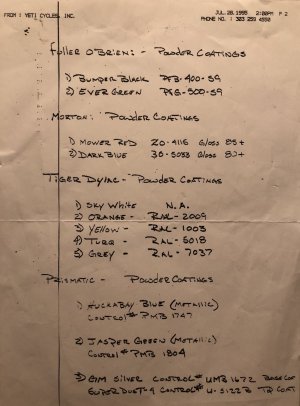 FROM : YETI CYCLES, INC.
JUL.28.1995 2:00PM P 2
PHONE NO. : 303 259 4550
FULLER O'BRIEN: - POWDER COATINGS
1) BUMPER BLACK PFB-400-S9
2) EVER GREEN PFG-500-S9
MORTON: POWDER COATINGS
1) MOWER RED 20-4116 GLOSS 85+
2) DARK BLUE 30-5033 GLOSS 80+
TIGER DYLAC - POWDER COATINGS
1) SKY WHITE N.A.
2) ORANGE - RAL-2009
3) YELLOW - RAL-1003
4) TURQ - RAL-5018
5) GREY - RAL-7037
PRISMATIC - POWDER COATINGS
1) HUCKABAY BLUE (METALLIC)
CONTROL# PMB 1747
2) JASPER GREEN (METALLIC)
CONTROL# PMB 1804
3) GIM SILVER CONTROL# UMB 1672 BASE COAT
SUPER DUTY CONTROL# U-5122B TOP COAT